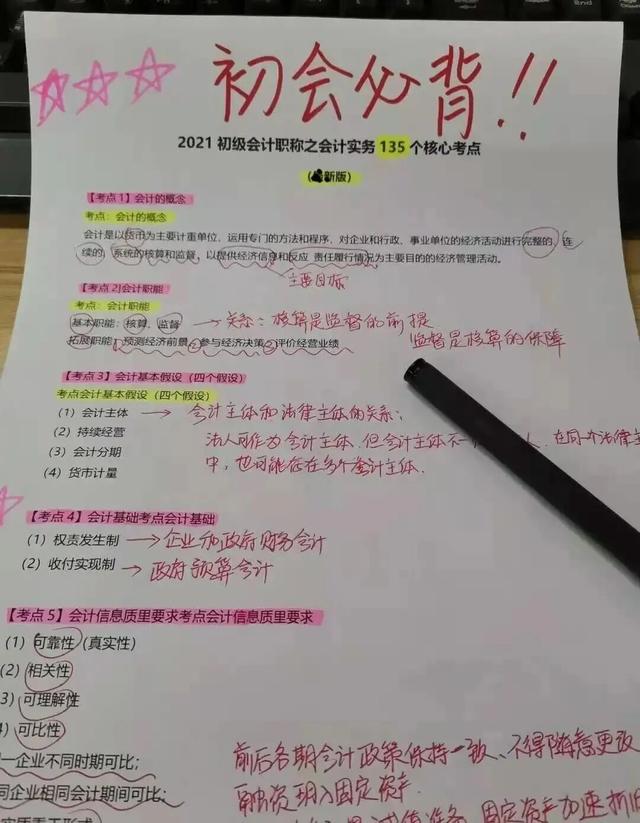 初会必背!!
2021 初级会计职称之会计实务 135 个核心考点
新版)
【考点 1】会计的概念
考点：会计的概念
会计是以货币为主要计重单位，运用专门的方法和程序，对企业和行政、事业单位的经济活动进行完整的，连
续的，系统的核算和监督，以提供经济信息和反应 责任履行情况为主要目的的经济管理活动。
主要目标
【考点 2]会计职能
考点：会计职能
基本职能：核算、监督 → 关系：核算是监督的前提
监督是核算的保障
拓展职能：预测经济前景 参与经济决策 评价经营业绩
【考点 3】会计基本假设（四个假设）
考点会计基本假设（四个假设）
（1）会计主体 → 会计主体和法律主体的关系：
（2）持续经营 法人可作为会计主体，但会计主体不一 人，在同一个法律主
（3）会计分期 中，也可能存在多个会计主体．
（4）货币计量
【考点 4】会计基础考点会计基础
（1）权责发生制 → 企业和政府财务会计
（2）收付实现制 → 政府预算会计
【考点 5】会计信息质里要求考点会计信息质里要求
（1）可靠性（真实性）
(2）相关性
3）可理解性
4）可比性
一企业不同时期可比； 前后各期会计政策保持一致、不得随意更改
同企业相同会计期间可比； 融资租入固定资产
实质重于形式 准备 固定资产加速折旧